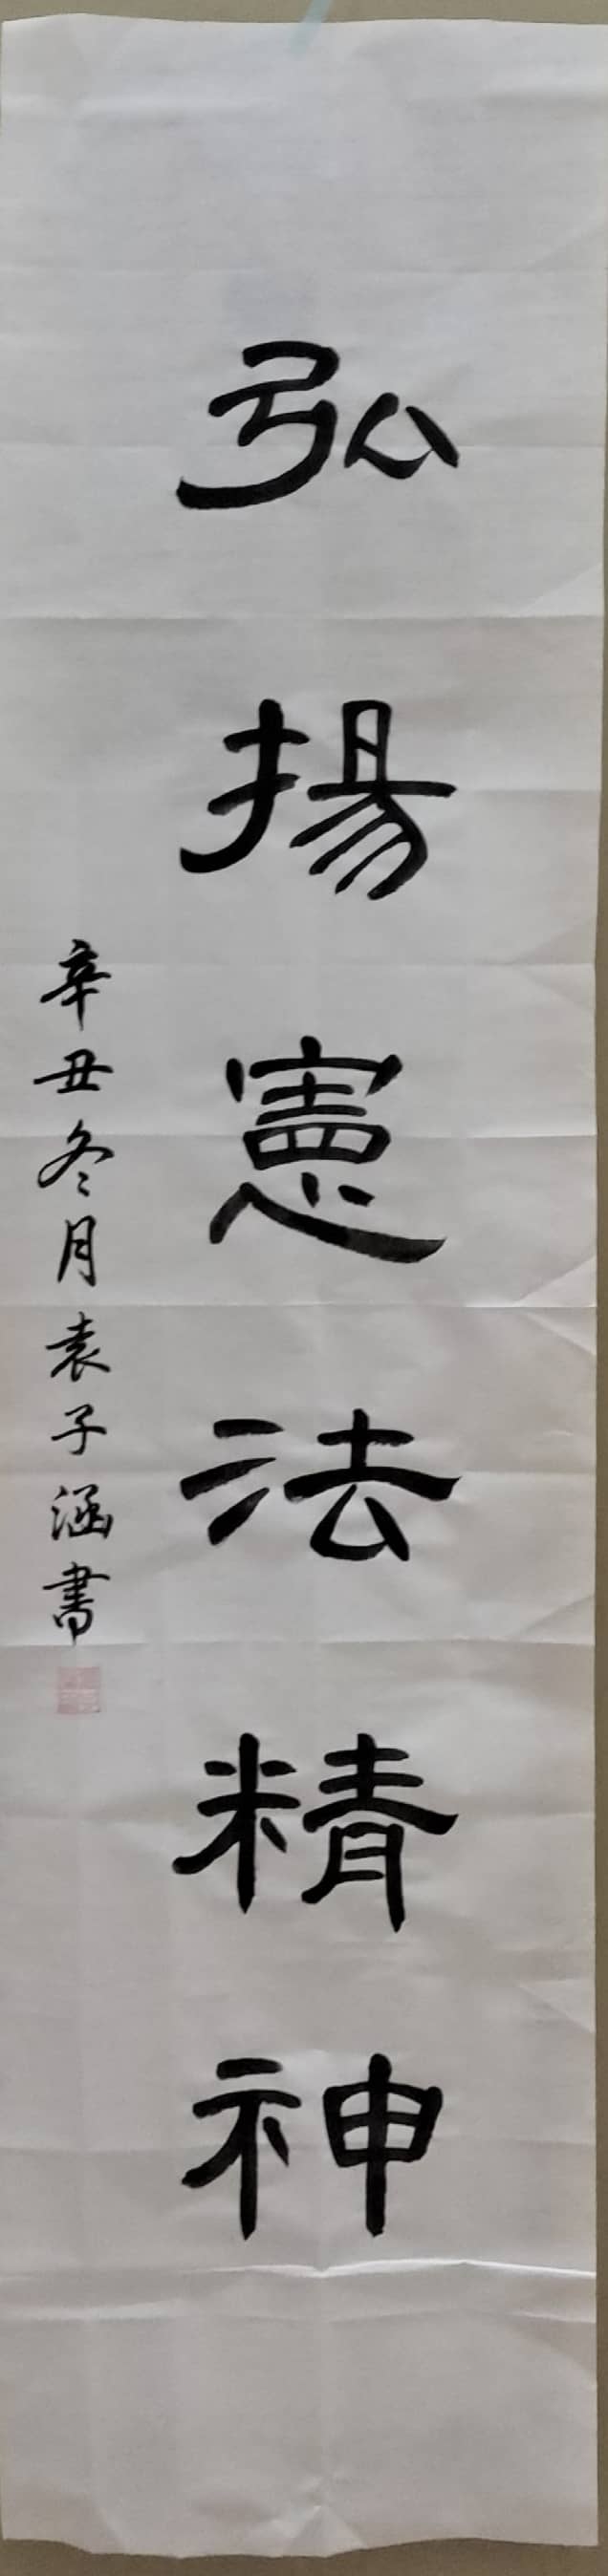 弘揚憲法精神
辛丑冬月袁子涵書